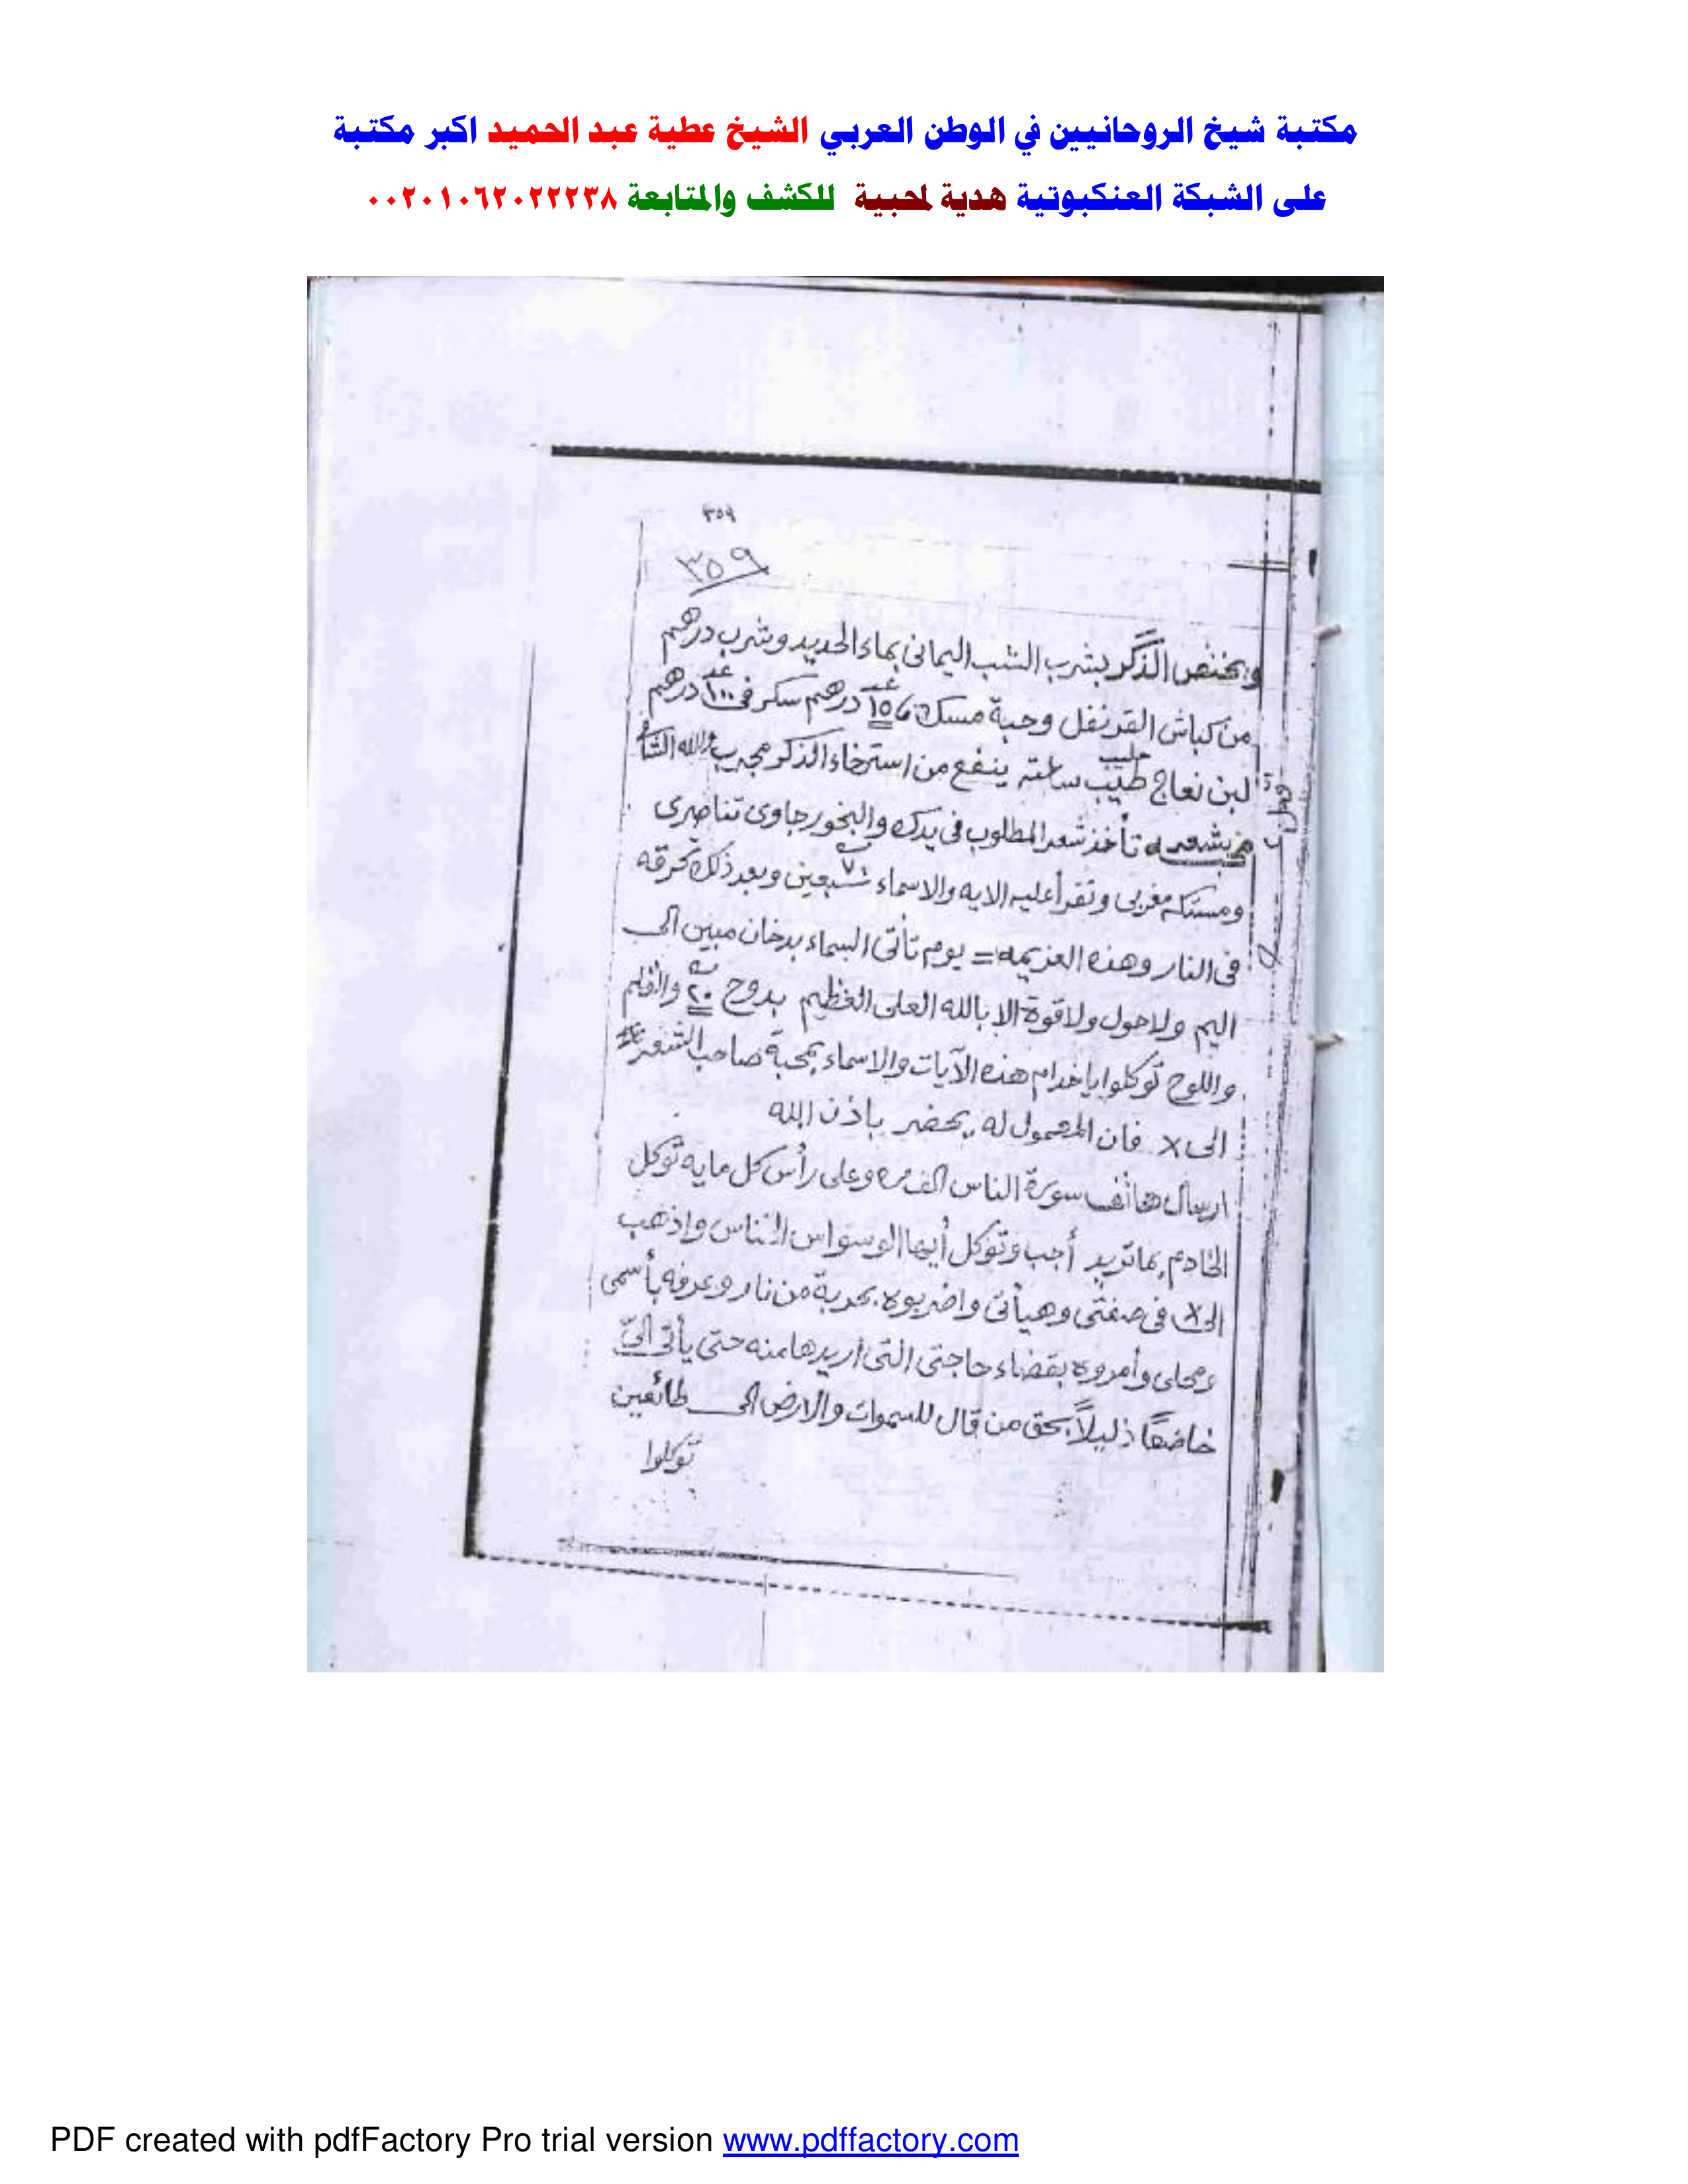 مكتبة شيخ الروحانيين في الوطن العربي الشيخ عطية عبد الحميد اكبر مكتبة
على الشبكة العنكبوتية هدية لمحبية للكشف والمتابعة ٠٠٢٠١٠٦٢٠٢٢٢٣٨
٣٥٩
٣٥٩
ويختص الذكر بشرب الشب اليمانى بماء الحديد وشرب درهم
من كباش القرنفل وحبة مسك ١٥ درهم سكر فى ١٠٠ درهم
لبن نعاج حليب طيب ساعته ينفع من استرخاء الذكر مجرب والله
تأخذ شعر المطلوب فى يدك والبخور جاوى تناصرى
ومستكه مغربى وتقرأ عليه الايه والاسماء ٧٠ وبعد ذلك تحرقه
فى النار وهذه العزيمه = يوم تأتى السماء بدخان مبين الى
اليم ولا حول ولا قوة الا بالله العلى العظيم بدوح ٢٠ والقلم
واللوح توكلوا ياخدام هذه الآيات والاسماء بمحبة صاحب الشعر
الى X فان المعمول له يحضر باذن الله
ارسال هاتف سورة الناس الف مره وعلى رأس كل مايه توكل
الخادم بما تريد أجب وتوكل أيها الوسواس الخناس واذهب
الى X فى صفتى وهيأتى واضربوه بحربة من نار وعرفه بأسمى
ومحلى وأمروه بقضاء حاجتى التى اريدها منه حتى يأتى الىّ
خاضعًا ذليلاً بحق من قال للسموات والارض الى طائعين
توكلوا
PDF created with pdfFactory Pro trial version www.pdffactory.com